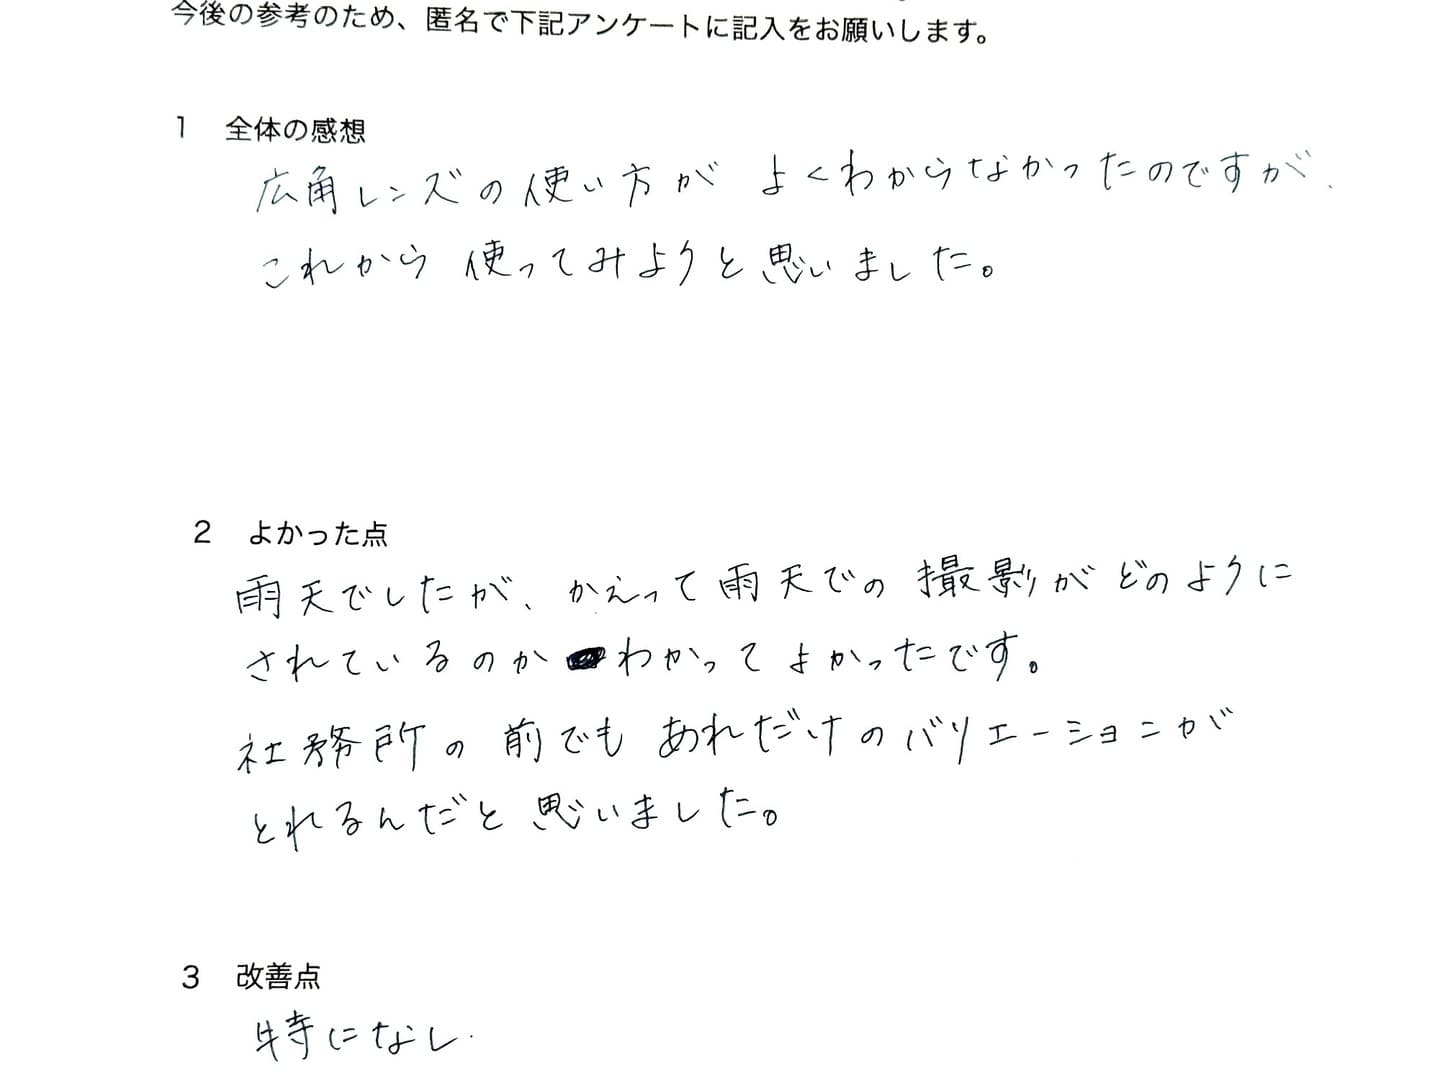 今後の参考のため、匿名で下記アンケートに記入をお願いします。
1 全体の感想
広角レンズの使い方が よくわからなかったのですが、
これから 使ってみようと思いました。
2 よかった点
雨天でしたが、かえって雨天での撮影がどのように
されているのか わかってよかったです。
社務所の前でも あれだけのバリエーションが
とれるんだと思いました。
3 改善点
特になし.